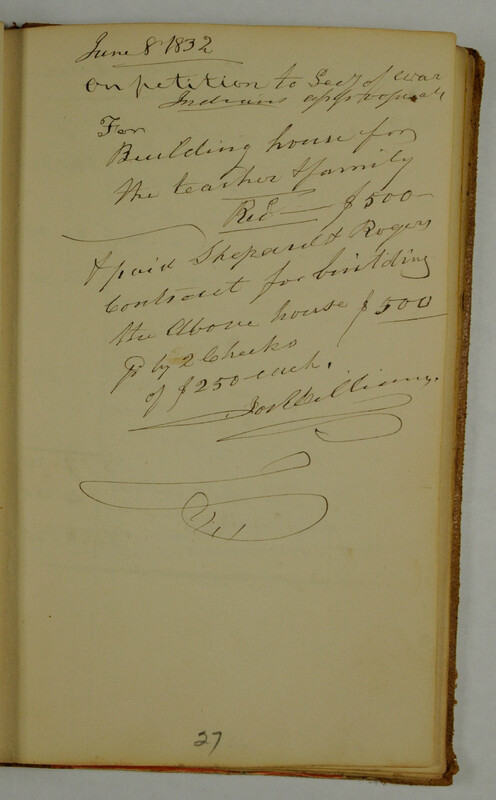 June 8 1832
On petition to Secy of War
Indians
For
Building house for
the teacher & family
Recd — $500—
& paid Shepard & Rogers
Contract for building
the above house $500
pr by 2 Checks
of $250 each.
Williams.
27